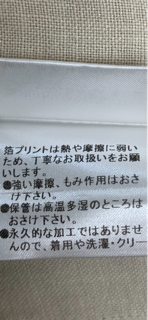 箔プリントは熱や摩擦に弱い
ため、丁寧なお取扱いをお願
いします。
●強い摩擦、もみ作用はおさ
け下さい。
●保管は高温多湿のところは
おさけ下さい。
●永久的な加工ではありませ
んので、着用や洗濯・クリー